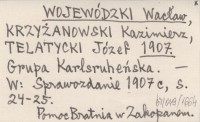 WOJEWÓDZKI Wacław,
KRZYŻANOWSKI Kazimierz,
TELATYCKI Józef 1907
Grupa Karlsruheńska. —
W: Sprawozdanie 1907 r, s.
24-25.
Pomoc Bratnia w Zakopanem.